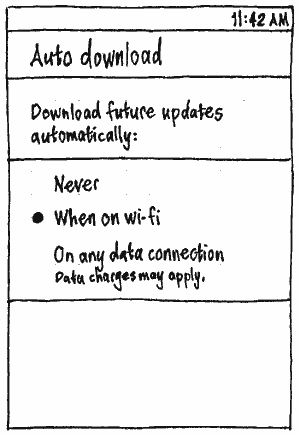 11:42 AM
Auto download
Download future updates
automatically:
Never
When on wi-fi
On any data connection
Data charges may apply.